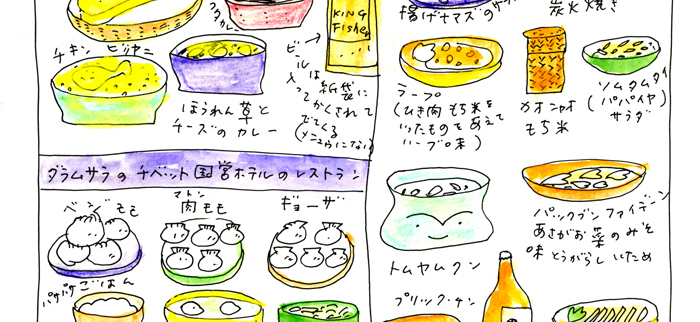 KING
Fisher
チキン ビリヤニ
ほうれん草と
チーズのカレー
ビールは
紙袋に
入って
かくされて
でてくる
(メニュウにない)
ダラムサラの チベット国営ホテルのレストラン
ベジモモ
マトン
肉モモ
ギョーザ
パサパサごはん
揚げナマズのサラダ
炭火焼き
ラープ
(ひき肉 もち米を
いったものをあえて
ハーブ味)
カオニャオ
もち米
ソムタムタイ
(パパイヤ)
サラダ
トムヤムクン
パックブンファイデーン
あさがお菜のみそ
味 とうがらしいため